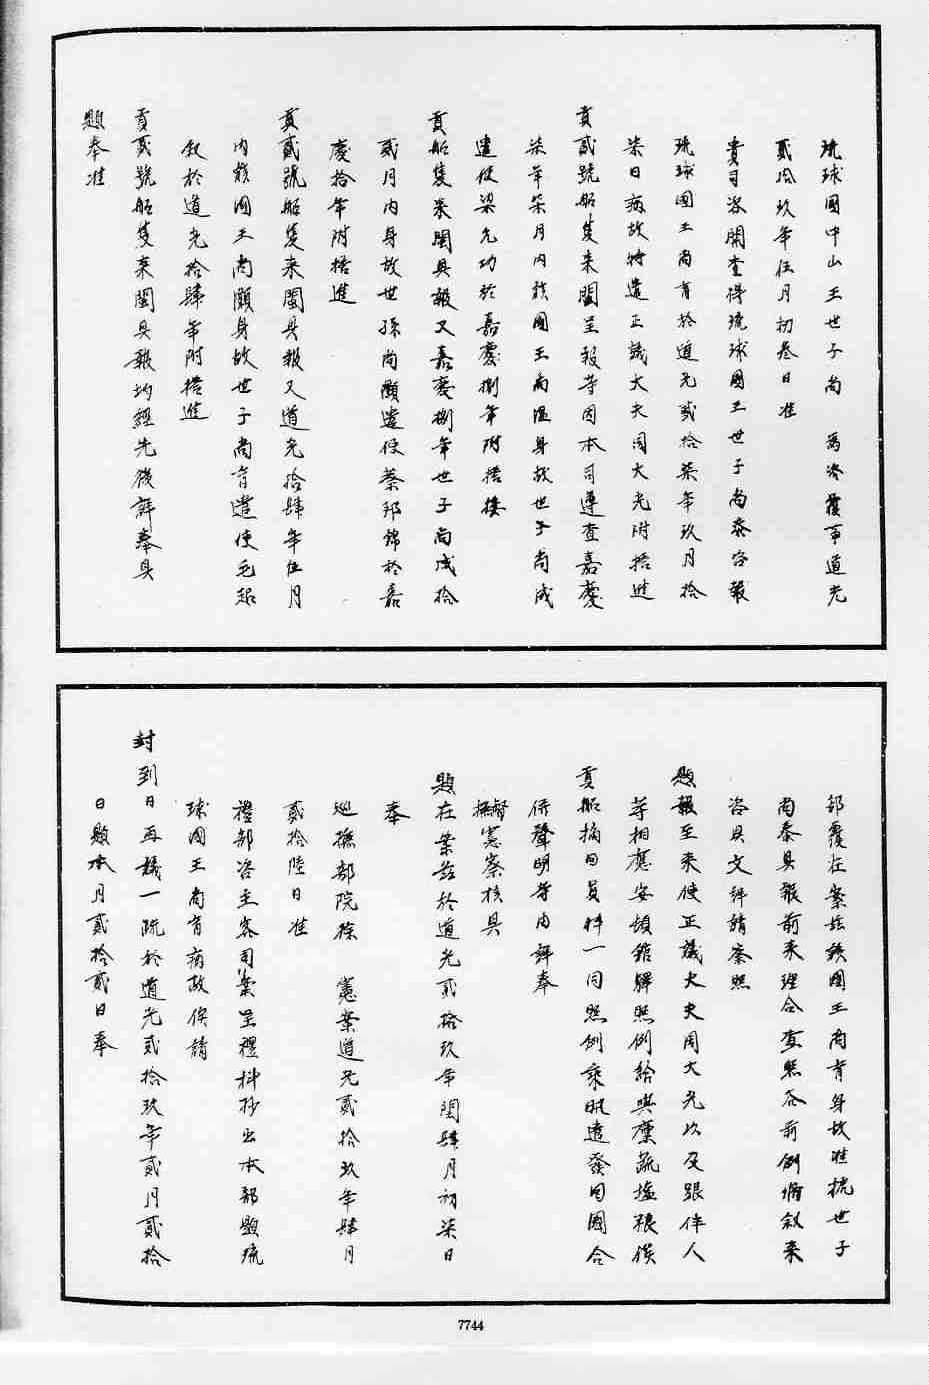 琉球國中山王世子尚　為咨覆事道光
貳拾玖年伍月初叁日准
貴司咨開查得琉球國王世子尚泰咨報
琉球國王尚育於道光貳拾柒年玖月拾
柒日病故特遣正議大夫周大光附搭進
貢貳號船隻來閩呈報等因本司遵查嘉慶
柒年柒月內該國王尚溫身故世子尚成
遣使梁允功於嘉慶捌年附搭接
貢船隻來閩具報又嘉慶捌年世子尚成拾
貳月內身故世孫尚灝遣使蔡邦錦於嘉
慶拾年附搭進
貢貳號船隻來閩具報又道光拾肆年伍月
內該國王尚灝身故世子尚育遣使毛起
敘於道光拾肆年附搭進
貢貳號船隻來閩具報均經先後詳奉具
題奉准
部覆在案茲該國王尚育身故准據世子
尚泰具報前來理合查照在前例備敘來
咨具文詳請察照
題報至來使正議大夫周大光以及跟伴人
等相應安頓館驛照例給與廩蔬鹽粮俟
貢船摘回員伴一同照例乘駛遣發回國合
併聲明等由詳奉
督撫憲察核具
題在案茲於道光貳拾玖年閏肆月初柒日
奉
巡撫部院徐　憲案道光貳拾玖年肆月
貳拾陸日准
禮部咨主客司案呈禮科抄出本部題琉
球國王尚育病故俟請
封到日再議一疏於道光貳拾玖年貳月貳拾
日題本月貳拾貳日奉
7744